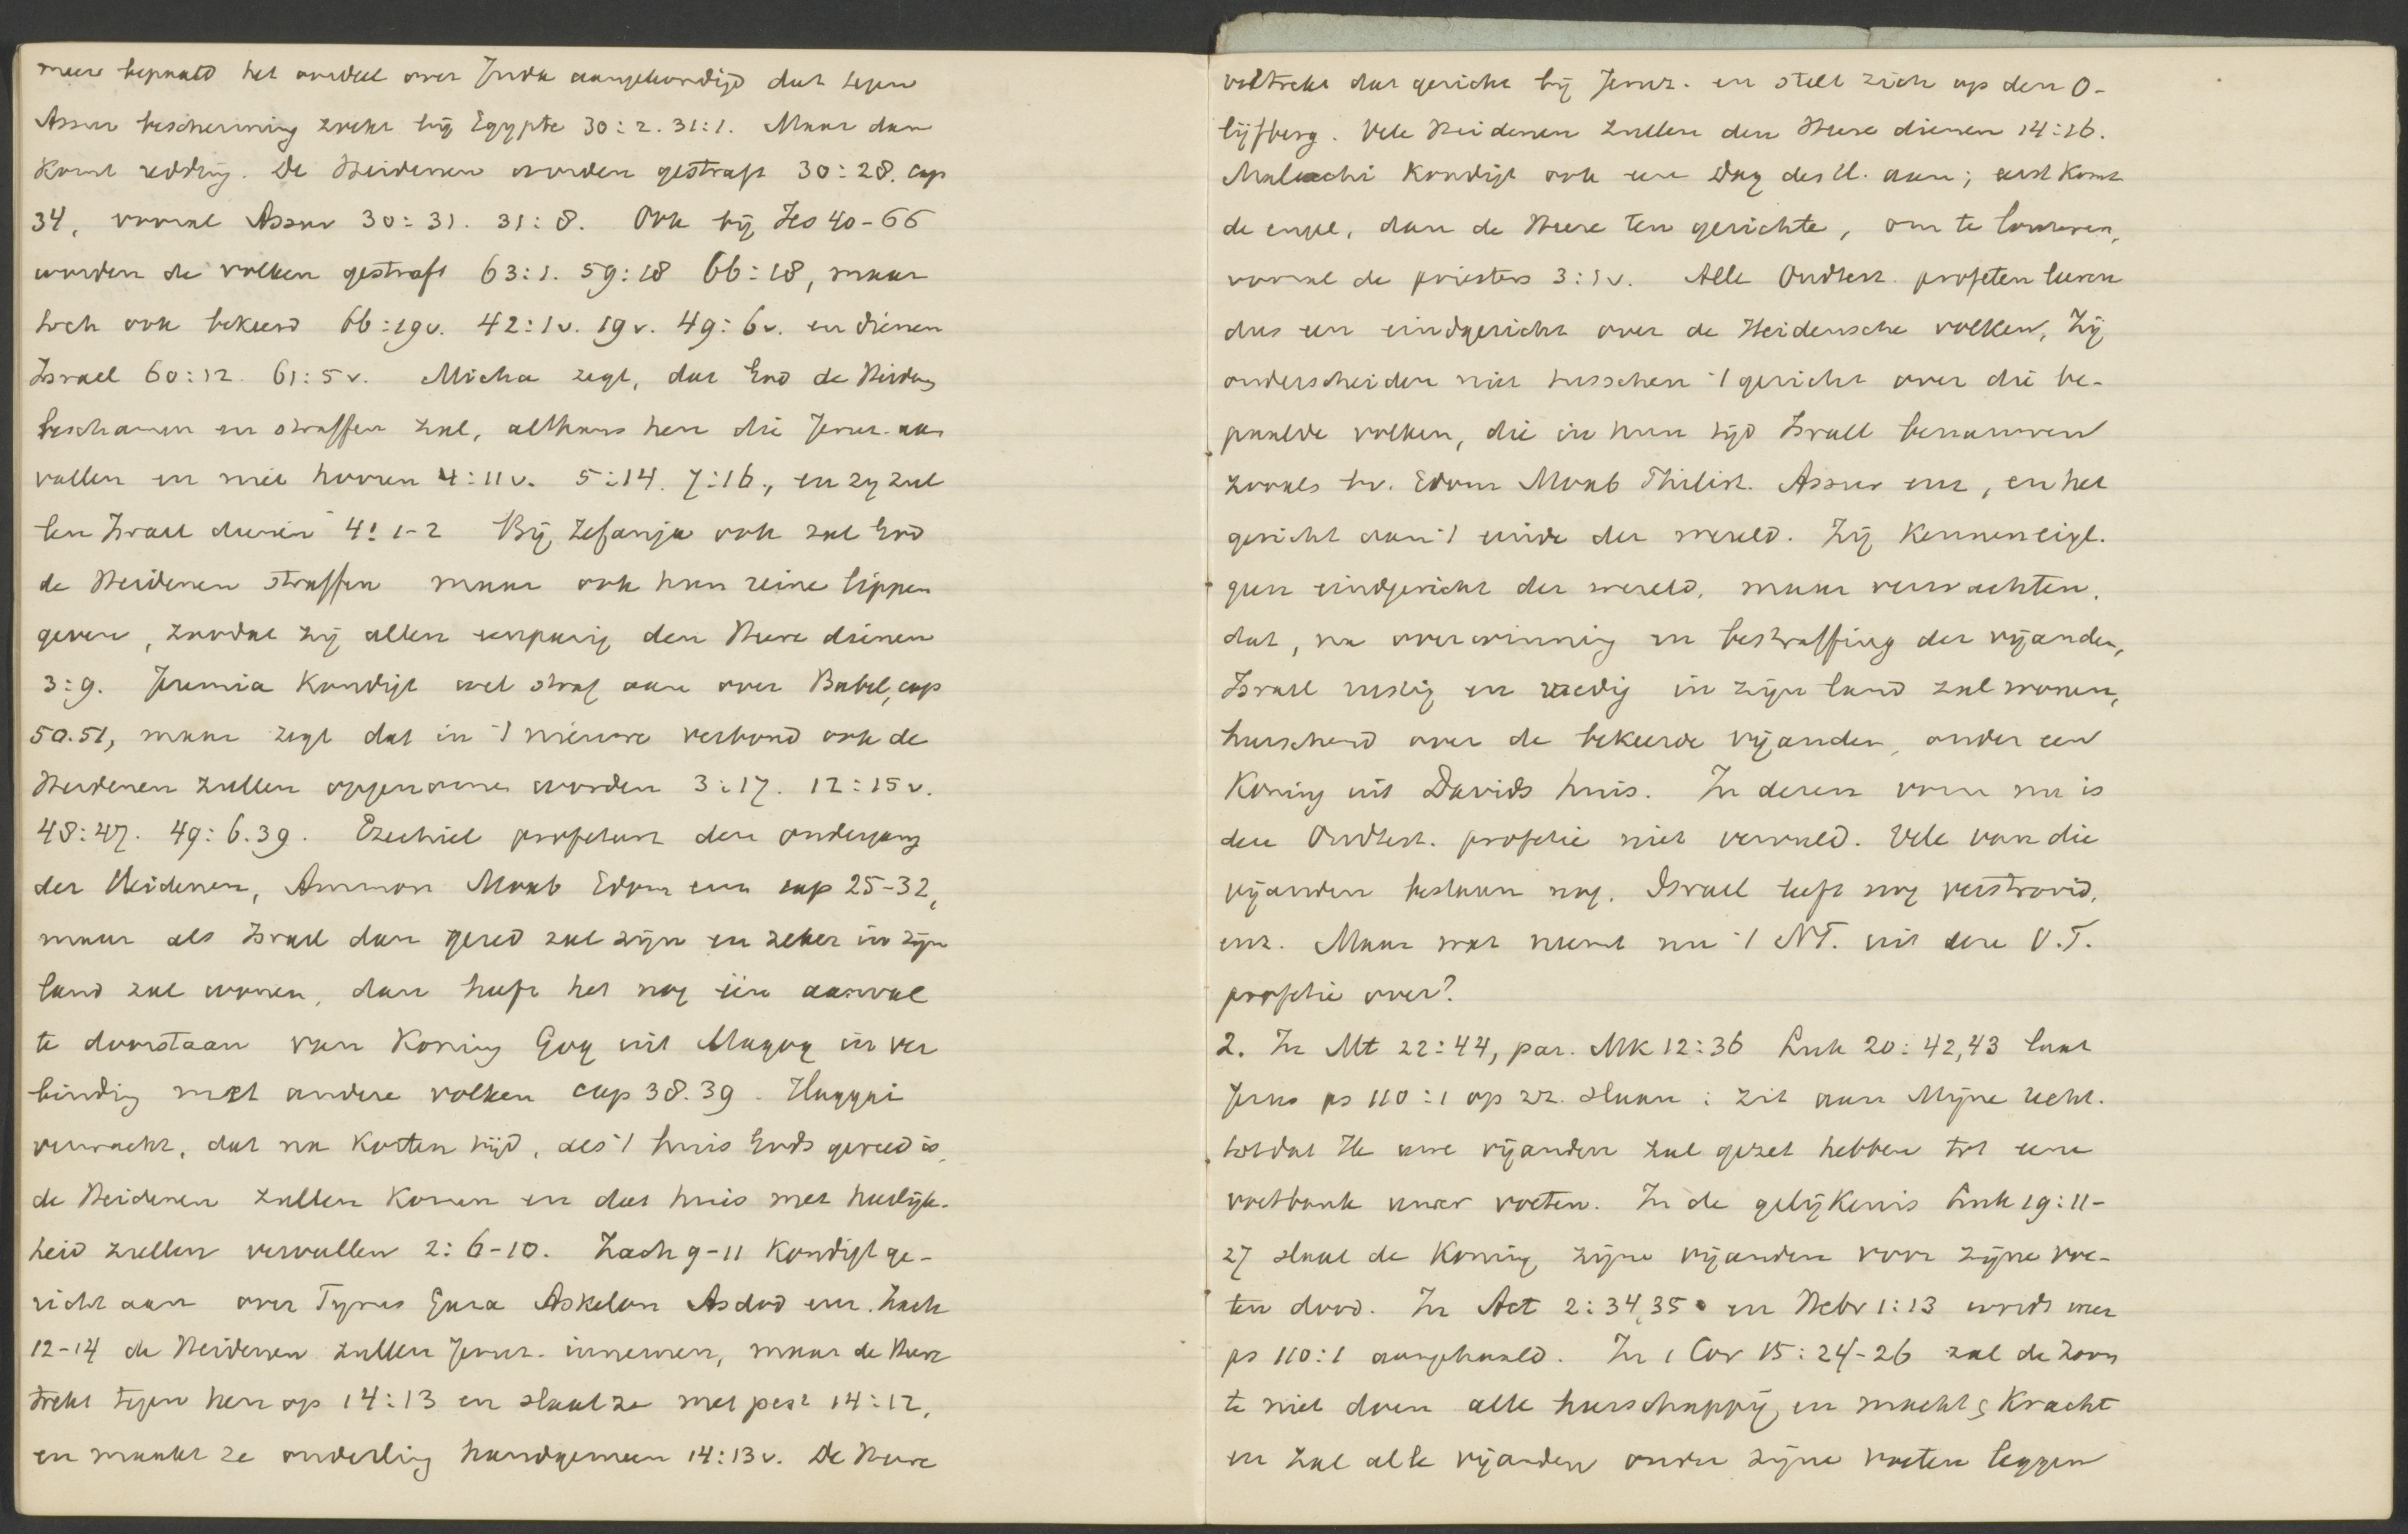 meer bepaald het oordeel over Juda aangekondigd dat tegen
Assur bescherming zoekt bij Egypte 30:2. 31:1. Maar dan
komt redding. De Heidenen worden gestraft 30:28. cap
34, vooral Assur 30:31. 31:8. Ook bij Jes 40-66
worden de volken gestraft 63:1. 59:18 66:18, maar
toch ook bekeerd 66:19v. 42:1v. 19v. 49:6v. en dienen
Israel 60:12. 61:5v. Micha zegt, dat God de Heidens
beschamen en straffen zal, althans hen die Jeruz. aan
vallen en niet hooren 4:11v. 5:14. 7:16., en zy zul
len Israel dienen 4:1-2 Bij Zefanja ook zal God
de Heidenen straffen maar ook hun reine lippen
geven, zoodat zij allen eenparig den Heere dienen
3:9. Jeremia kondigt wel straf aan over Babel, cap
50.51, maar zegt dat in 't nieuwe verbond ook de
Heidenen zullen opgenomen worden 3:17. 12:15v.
48:47. 49:6.39. Ezechiel profeteert den ondergang
der Heidenen, Ammon Moab Edom enz cap 25-32,
maar als Israel dan gered zal zijn en zeker in zijn
land zal wonen, dan heeft het nog één aanval
te doorstaan van Koning Gog uit Magog in ver
binding met andere volken cap 38.39. Haggai
verwacht, dat na korten tijd, als 't huis Gods gereed is,
de Heidenen zullen komen en dat huis met heerlijk-
heid zullen vervullen 2:6-10. Zach 9-11 kondigt ge-
richt aan over Tyrus Gaza Askelon Asdod enz. Zach
12-14 de Heidenen zullen Jeruz. innemen, maar de Heere
trekt tegen hen op 14:13 en slaat ze met pest 14:12,
en maakt ze onderling handgemeen 14:13v. De Heere
voltrekt dat gericht bij Jeruz. en stelt zich op den O-
lijfberg. Vele Heidenen zullen den Heere dienen 14:16.
Maleachi kondigt ook een Dag des H. aan; eerst komt
de engel, dan de Heere ten gerichte, om te louteren,
vooral de priesters 3:1v. Alle Oudtest. profeten leeren
dus een eindgericht over de Heidensche volken. Zij
onderscheiden niet tusschen 't gericht over die be-
paalde volken, die in hun tijd Israel benauwen
zooals bv. Edom Moab Philist. Assur enz, en het
gericht aan 't einde der wereld. Zij kennen eigl.
geen eindgericht der wereld, maar verwachten,
dat, na overwinning en bestraffing der vijanden,
Israel rustig en vredig in zijn land zal wonen,
heerschend over de bekeerde vijanden, onder een
Koning uit Davids huis. In dezen vorm nu is
deze Oudtest. profetie niet vervuld. Vele van die
vijanden bestaan nog. Israel leeft nog verstrooid,
enz. Maar wat neemt nu 't NT. uit deze O.T.
profetie over?
2. In Mt 22:44, par. Mk 12:36 Luk 20:42,43 laat
Jezus ps 110:1 op zz. slaan: zit aan Mijne recht.
totdat Ik uwe vijanden zal gezet hebben tot eene
voetbank uwer voeten. In de gelijkenis Luk 19:11-
27 slaat de Koning zijne vijanden voor zijne voe-
ten dood. In Act 2:34,35 en Hebr 1:13 wordt weer
ps 110:1 aangehaald. In 1 Cor 15:24-26 zal de Zoon
te niet doen alle heerschappij, en macht & kracht
en zal alle vijanden onder zijne voeten leggen